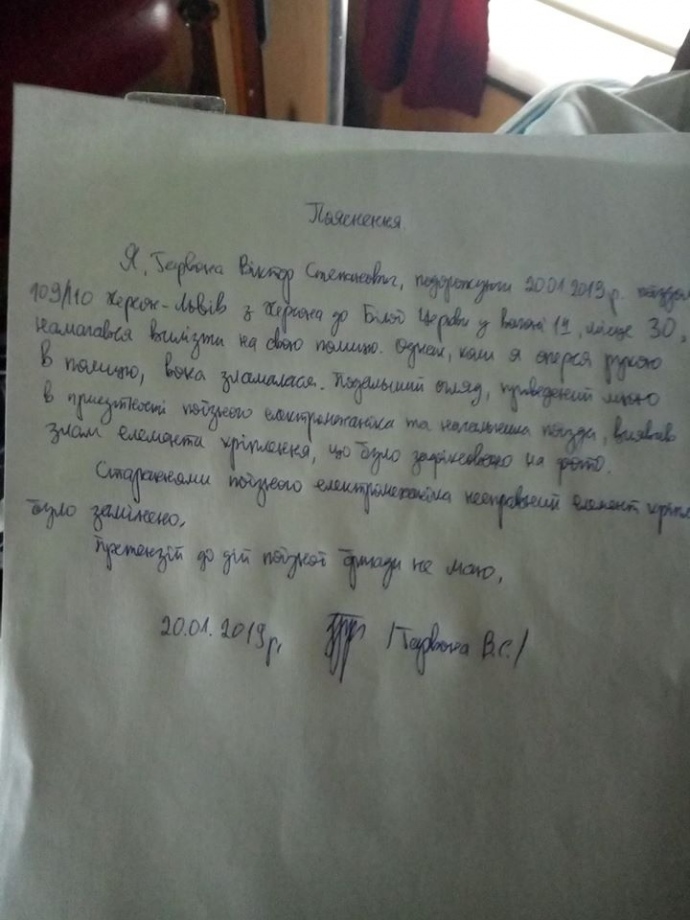 Пояснення
Я, Віктор Степанович, подорожуючи 20.01.2019 р. поїздом
109/110 Херсон-Львів з Херсона до Білої Церкви у вагоні 12, місце 30,
намагався вилізти на свою полицю. Однак, коли я оперся рукою
в полицю, вона зламалася. Подальший огляд, проведений мною
в присутності поїзного електромеханіка та начальника поїзда, виявив
злам елемента кріплення, що було зафіксовано на фото.
Стараннями поїзного електромеханіка несправний елемент кріпл
було замінено.
Претензій до дій поїзної бригади не маю.
20.01.2019р. В.С./